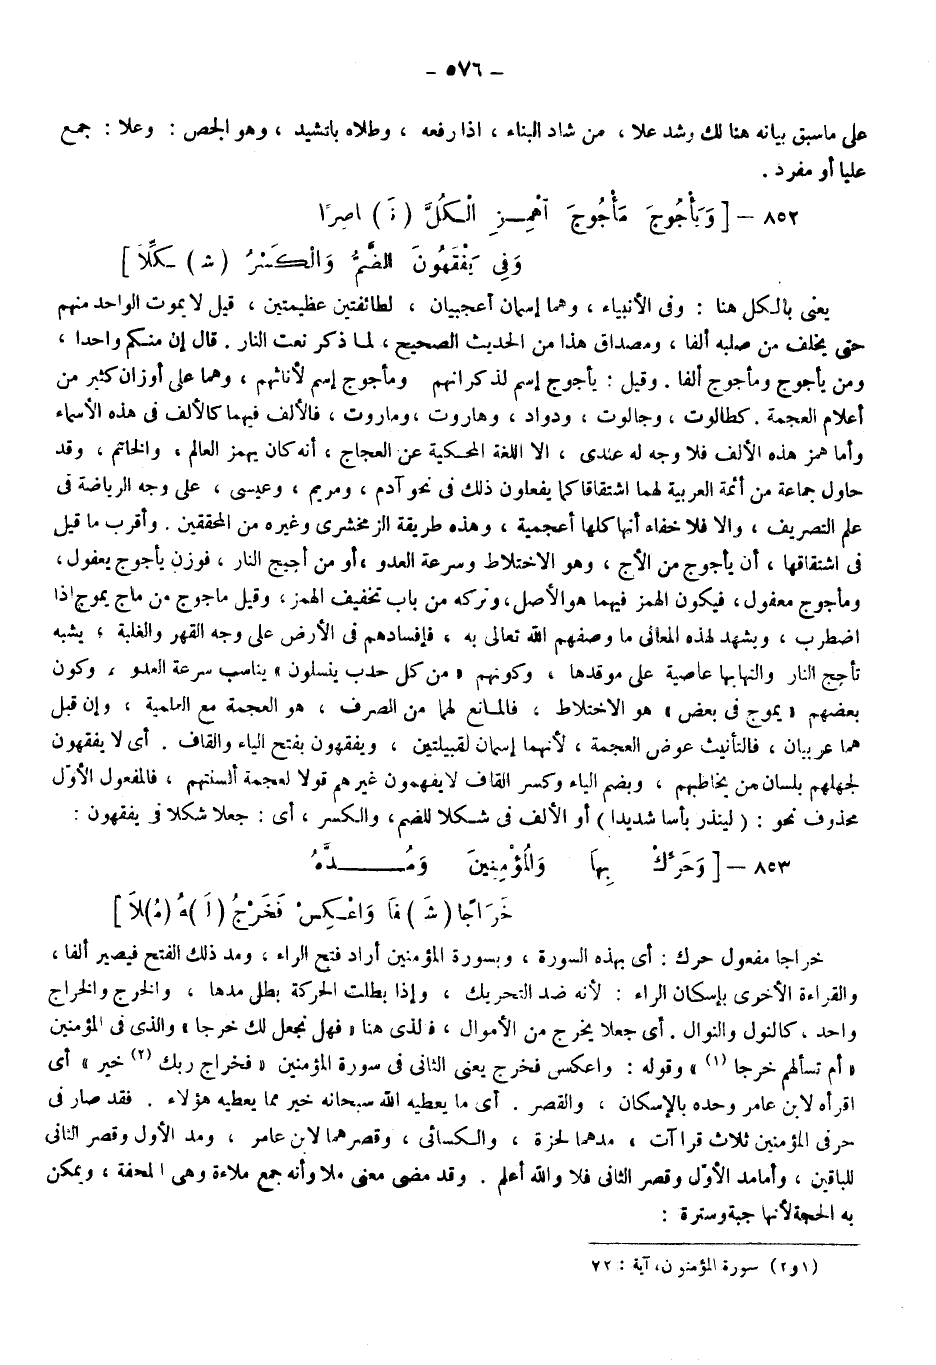 – ٥٧٦ –
على ماسبق بيانه هنا لك وشد علا ، من شاد البناء ، اذا رفعه ، وطلاه باتشيد ، وهو الجص : وعلا : جمع
عليا أو مفرد .
٨٥٢ – [ وَيَأْجُوجَ مَأْجُوجَ آهْمِـزِ الْكُلَّ ( نَـ ) اصِرًا
وَفِي يَفْقَهُونَ الضَّمُّ وَالْكَسْرُ ( شُـ ) ـكِّلَا ]
يعنى بالكل هنا : وفى الأنبياء ، وهما إسمان أعجميان ، لطائفتين عظيمتين ، قيل لا يموت الواحد منهم
حتى يخلف من صلبه ألفا ، ومصداق هذا من الحديث الصحيح ، لما ذكر نعت النار . قال إن منكم واحدا ،
ومن يأجوج ومأجوج ألفا . وقيل : يأجوج إسم لذكرانهم ومأجوج إسم لأناثهم ، وهما على أوزان كثير من
أعلام العجمة . كطالوت ، وجالوت ، ودواد ، وهاروت ،وماروت ، فالألف فيهما كالألف فى هذه الأسماء
وأما همز هذه الألف فلا وجه له عندى ، الا اللغة المحكية عن العجاج ، أنه كان يهمز العالم ، والخاتم ، وقد
حاول جماعة من أئمة العربية لهما اشتقاقا كما يفعلون ذلك فى نحو آدم ، ومريم ، وعيسى ، على وجه الرياضة فى
علم التصريف ، والا فلا خفاء أنها كلها أعجمية ، وهذه طريقة الزمخشرى وغيره من المحققين . وأقرب ما قيل
فى اشتقاقها ، أن يأجوج من الأج ، وهو الاختلاط وسرعة العدو ،أو من أجيج النار ، فوزن يأجوج يعفول ،
ومأجوج معفول ، فيكون الهمز فيهما هو الأصل ، وتركه من باب تخفيف الهمز ، وقيل ماجوج من ماج يموج اذا
اضطرب ، ويشهد لهذه المعانى ما وصفهم الله تعالى به ، فإفسادهم فى الأرض على وجه القهر والغلبة ، يشبه
تأجج النار والتهابها عاصية على موقدها ، وكونهم « من كل حدب ينسلون » يناسب سرعة العدو ، وكون
بعضهم « يموج فى بعض » هو الاختلاط ، فالمانع لهما من الصرف ، هو العجمة مع العلمية ، وإن قيل
هما عربيان ، فالتأنيث عوض العجمة ، لأنهما إسمان لقبيلتين ، ويفقهون بفتح الياء والقاف . أى لا يفقهون
لجهلهم بلسان من يخاطبهم ، وبضم الياء وكسر القاف لا يفهمون غيرهم قولا لعجمة ألسنتهم ، فالمفعول الأوّل
محذوف نحو : ( لينذر بأسا شديدا ) أو الألف فى شكلا للضم، والكسر ، أى : جعلا شكلا فى يفقهون :
٨٥٣ – [ وَحَرِّكْ بِهَا وَالْمُؤْمِنِينَ وَمُـــــدَّهُ
خَرَاجًا ( شَـ ) ـفَا وَاعْكِسْ فَخَرْجُ ( لَـ )ـهُ (مُـ)ـلَا ]
خراجا مفعول حرك : أى بهذه السورة ، وبسورة المؤمنين أراد فتح الراء ، ومد ذلك الفتح فيصير ألفا ،
والقراءة الأخرى بإسكان الراء : لأنه ضد التحريك ، وإذا بطلت الحركة بطل مدها ، والخرج والخراج
واحد ، كالنول والنوال . أى جعلا يخرج من الأموال ، فالذى هنا « فهل نجعل لك خرجا » والذى فى المؤمنين
« أم تسألهم خرجا (١) » وقوله : واعكس فخرج يعنى الثانى فى سورة المؤمنين « فخراج ربك (٢) خير » أى
اقرأه لابن عامر وحده بالإسكان ، والقصر . أى ما يعطيه الله سبحانه خير مما يعطيه هؤلاء . فقد صار فى
حرفى المؤمنين ثلاث قراآت ، مدهما لحمزة ، والكسائى ، وقصرهما لابن عامر ، ومد الأول وقصر الثانى
للباقين ، وأما مد الأوّل وقصر الثانى فلا والله أعلم . وقد مضى معنى ملا وأنه جمع ملاءة وهى الملحفة ، ويمكن
به الحجة لأنها جبة وسترة :
(١ و٢) سورة المؤمنون، آية : ٧٢